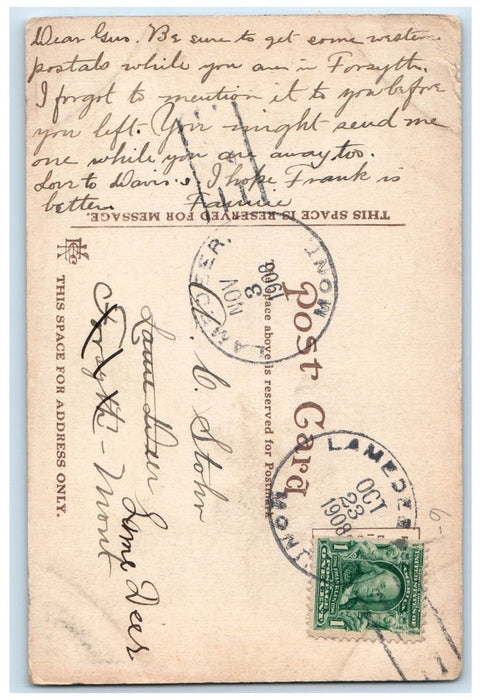 Dear Gus. Be sure to get some western
postals while you are in Forsyth.
I forgot to mention it to you before
you left. You might send me
one while you are away too.
Love to Davis. I hope Frank is
better. Fannie
THIS SPACE IS RESERVED FOR MESSAGE.
Post Card
The space above is reserved for Postmark
THIS SPACE FOR ADDRESS ONLY.
C. Stohr
Lame Deer
Forsyth - Mont
Lame Deer
LAMEDEER, MONT.
NOV
3
1908
LAMEDEER
MONT
OCT
23
1908
UNITED STATES OF AMERICA
1 ONE CENT 1
6-